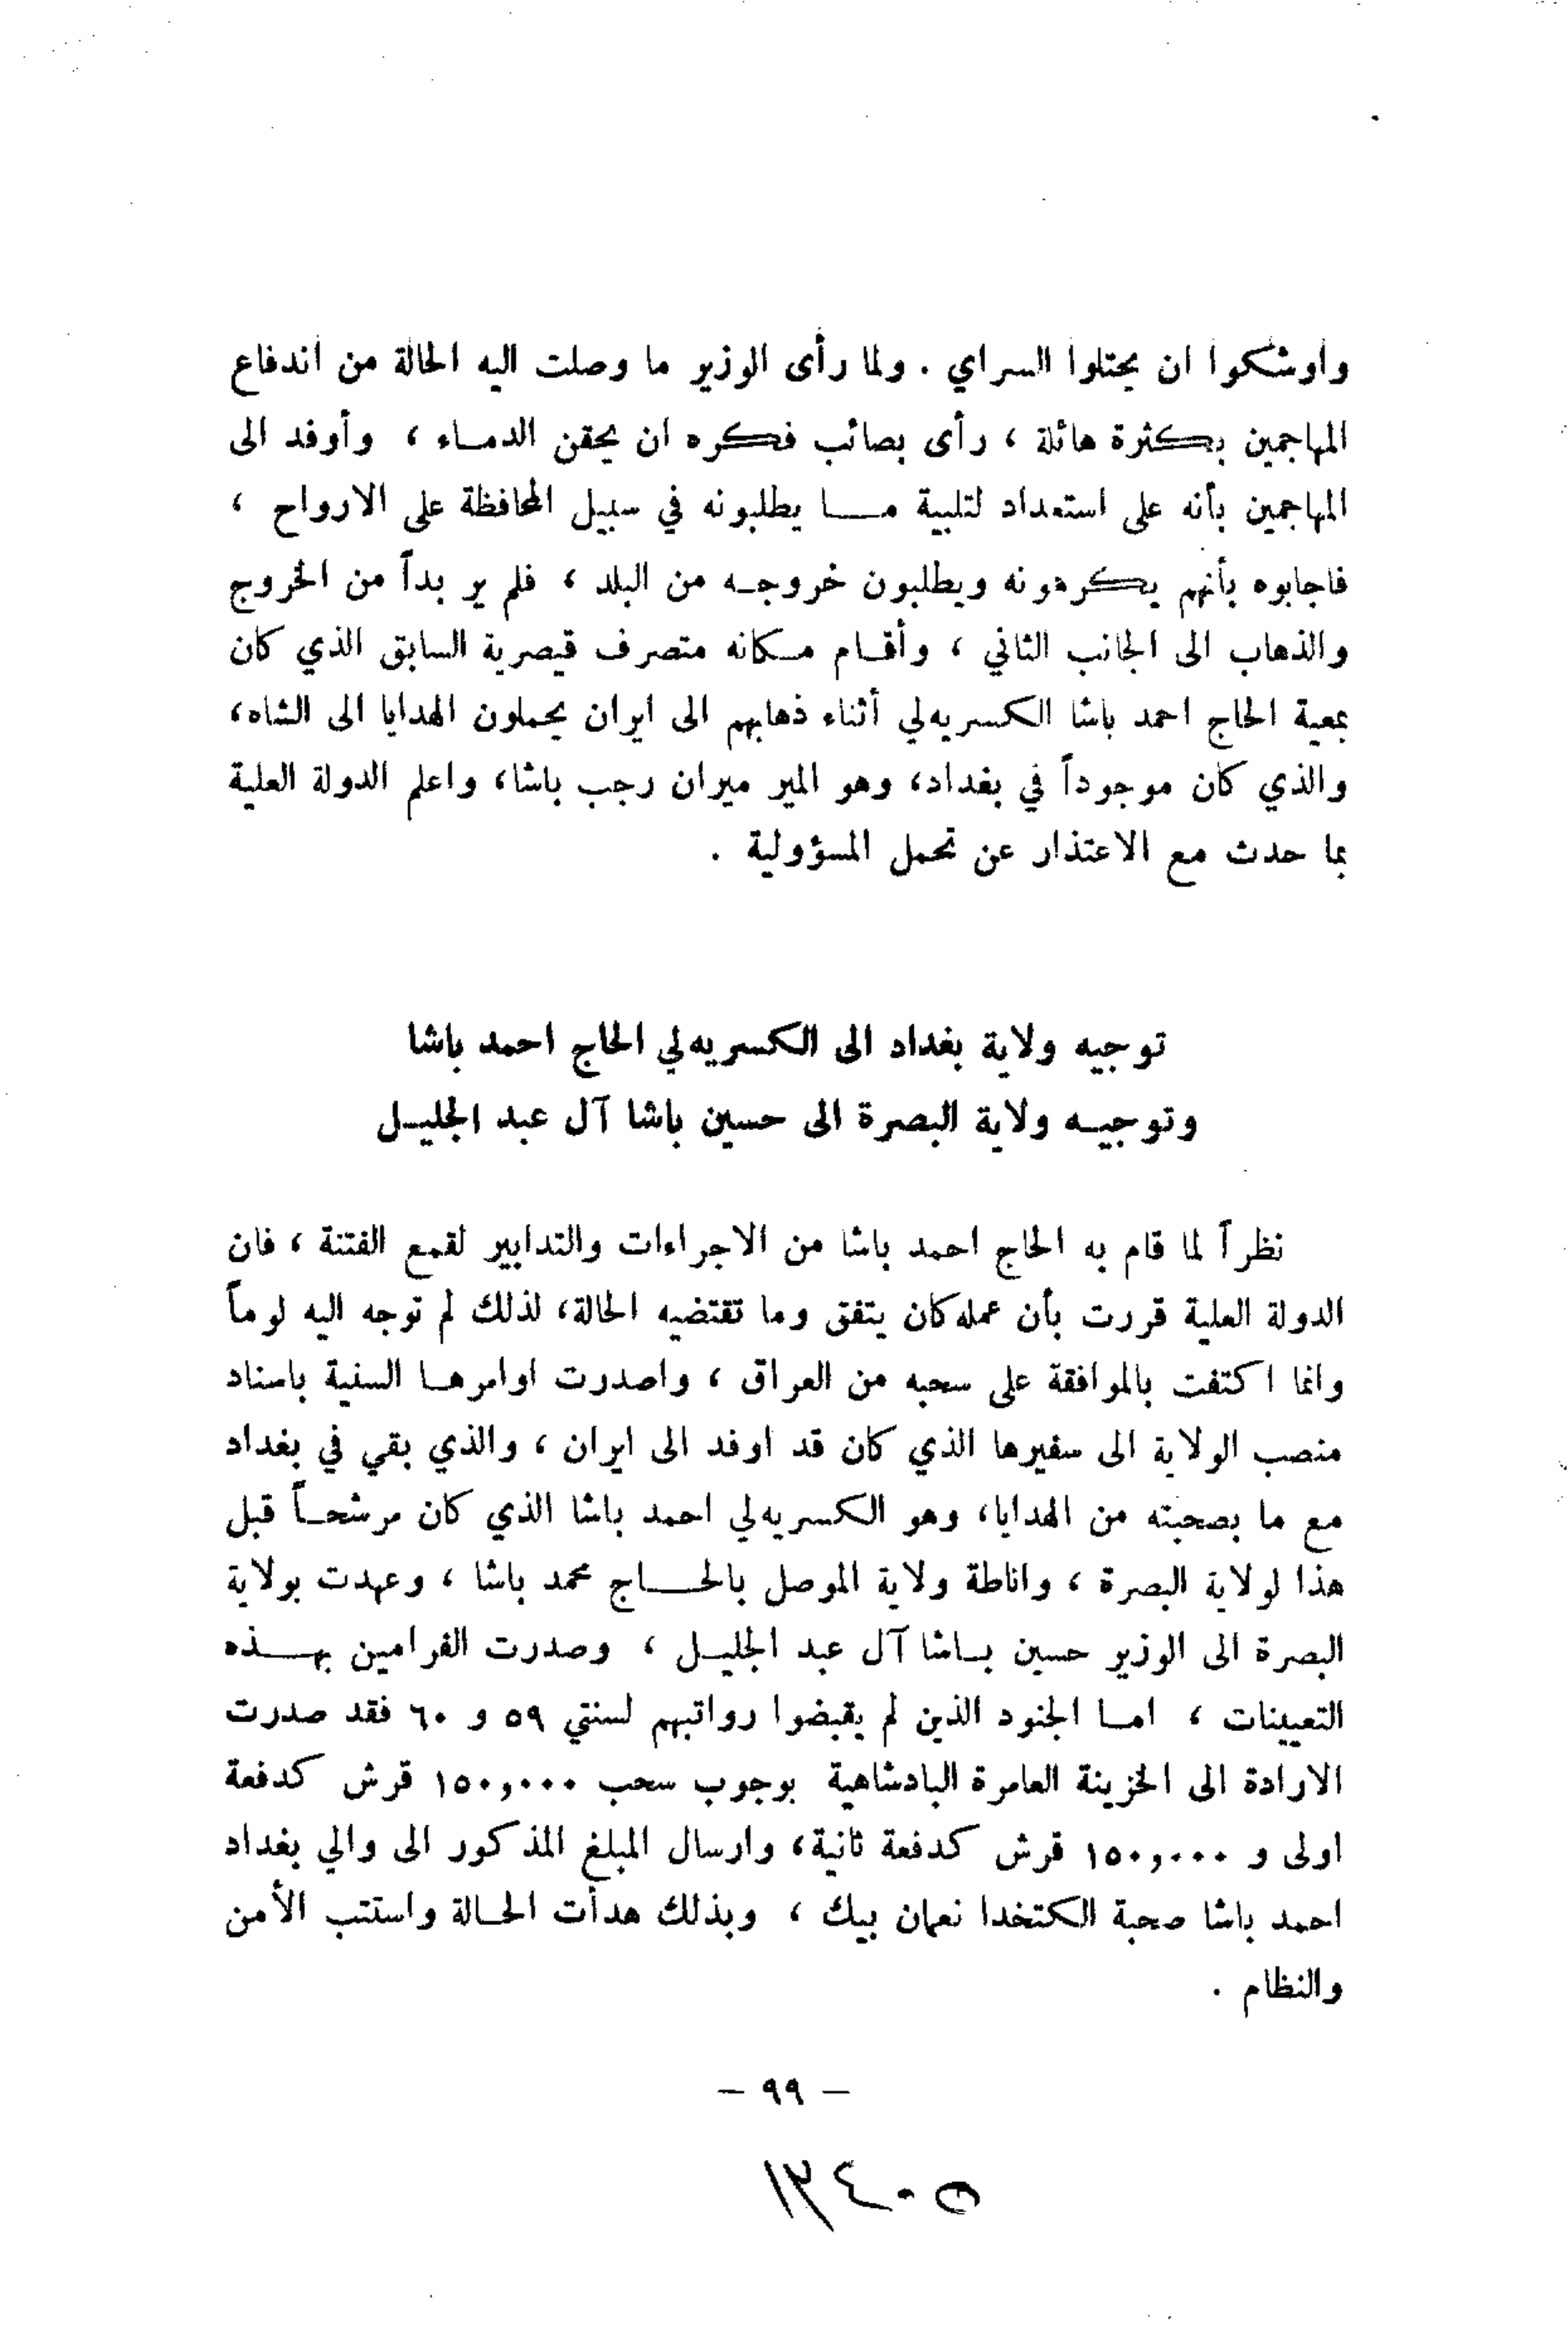 وأوشكوا ان يحتلوا السراي . ولما رأى الوزير ما وصلت اليه الحالة من اندفاع
المهاجمين بكثرة هائلة ، رأى بصائب فكره ان يحقن الدماء ، وأوفد الى
المهاجمين بأنه على استعداد لتلبية ما يطلبونه في سبيل المحافظة على الارواح ،
فاجابوه بأنهم يكرهونه ويطلبون خروجه من البلد ، فلم ير بداً من الخروج
والذهاب الى الجانب الثاني ، وأقام مكانه متصرف قيصرية السابق الذي كان
بمعية الحاج احمد باشا الكسريه‌لي أثناء ذهابهم الى ايران يحملون الهدايا الى الشاه،
والذي كان موجوداً في بغداد، وهو المير ميران رجب باشا، واعلم الدولة العلية
بما حدث مع الاعتذار عن تحمل المسؤولية .
توجيه ولاية بغداد الى الكسريه‌لي الحاج احمد باشا
وتوجيه ولاية البصرة الى حسين باشا آل عبد الجليل
نظراً لما قام به الحاج احمد باشا من الاجراءات والتدابير لقمع الفتنة ، فان
الدولة العلية قررت بأن عمله كان يتفق وما تقتضيه الحالة، لذلك لم توجه اليه لوماً
وانما اكتفت بالموافقة على سحبه من العراق ، واصدرت اوامرها السنية باسناد
منصب الولاية الى سفيرها الذي كان قد اوفد الى ايران ، والذي بقي في بغداد
مع ما بصحبته من الهدايا، وهو الكسريه‌لي احمد باشا الذي كان مرشحاً قبل
هذا لولاية البصرة ، واناطة ولاية الموصل بالحاج محمد باشا ، وعهدت بولاية
البصرة الى الوزير حسين باشا آل عبد الجليل ، وصدرت الفرامين بهذه
التعيينات ، اما الجنود الذين لم يقبضوا رواتبهم لسنتي ٥٩ و ٦٠ فقد صدرت
الارادة الى الخزينة العامرة البادشاهية بوجوب سحب ١٥٠,٠٠٠ قرش كدفعة
اولى و ١٥٠,٠٠٠ قرش كدفعة ثانية، وارسال المبلغ المذكور الى والي بغداد
احمد باشا صحبة الكتخدا نعمان بيك ، وبذلك هدأت الحالة واستتب الأمن
والنظام .
– ٩٩ –